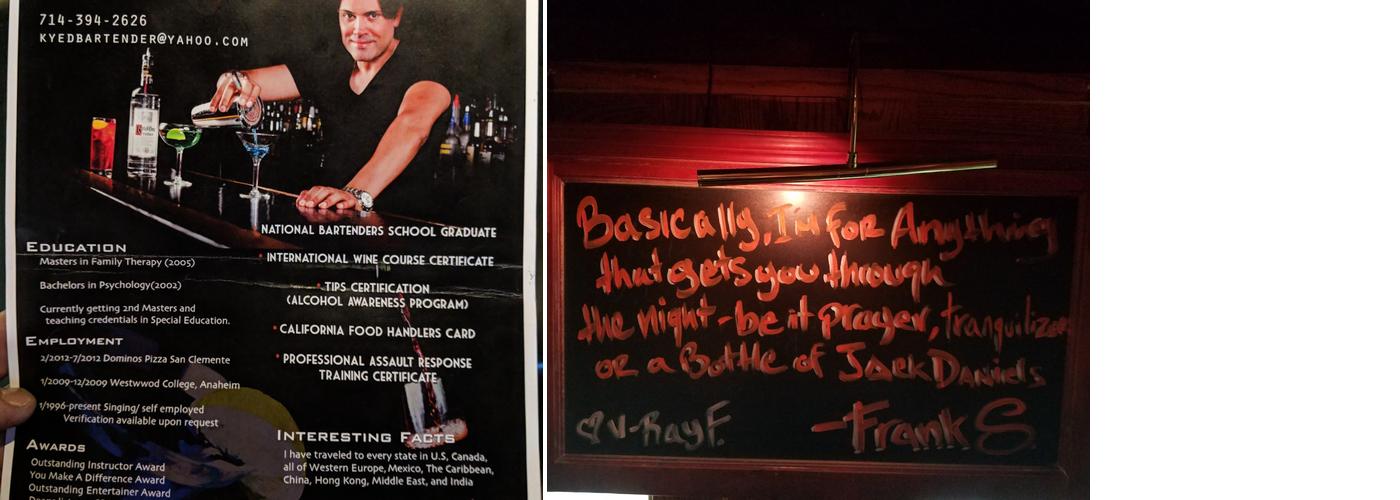 714-394-2626
KYEDBARTENDER@YAHOO.COM
NATIONAL BARTENDERS SCHOOL GRADUATE
INTERNATIONAL WINE COURSE CERTIFICATE
TIPS CERTIFICATION
(ALCOHOL AWARENESS PROGRAM)
CALIFORNIA FOOD HANDLERS CARD
PROFESSIONAL ASSAULT RESPONSE
TRAINING CERTIFICATE
EDUCATION
Masters in Family Therapy (2005)
Bachelors in Psychology(2002)
Currently getting 2nd Masters and
teaching credentials in Special Education.
EMPLOYMENT
2/2012-7/2012 Dominos Pizza San Clemente
1/2009-12/2009 Westwwod College, Anaheim
1/1996-present Singing/ self employed
Verification available upon request
AWARDS
Outstanding Instructor Award
You Make A Difference Award
Outstanding Entertainer Award
INTERESTING FACTS
I have traveled to every state in U.S, Canada,
all of Western Europe, Mexico, The Caribbean,
China, Hong Kong, Middle East, and India
Basically, I'm for Anything
that gets you through
the night-be it prayer, tranquilizers
or a Bottle of Jack Daniels
V-Ray F. -Frank S